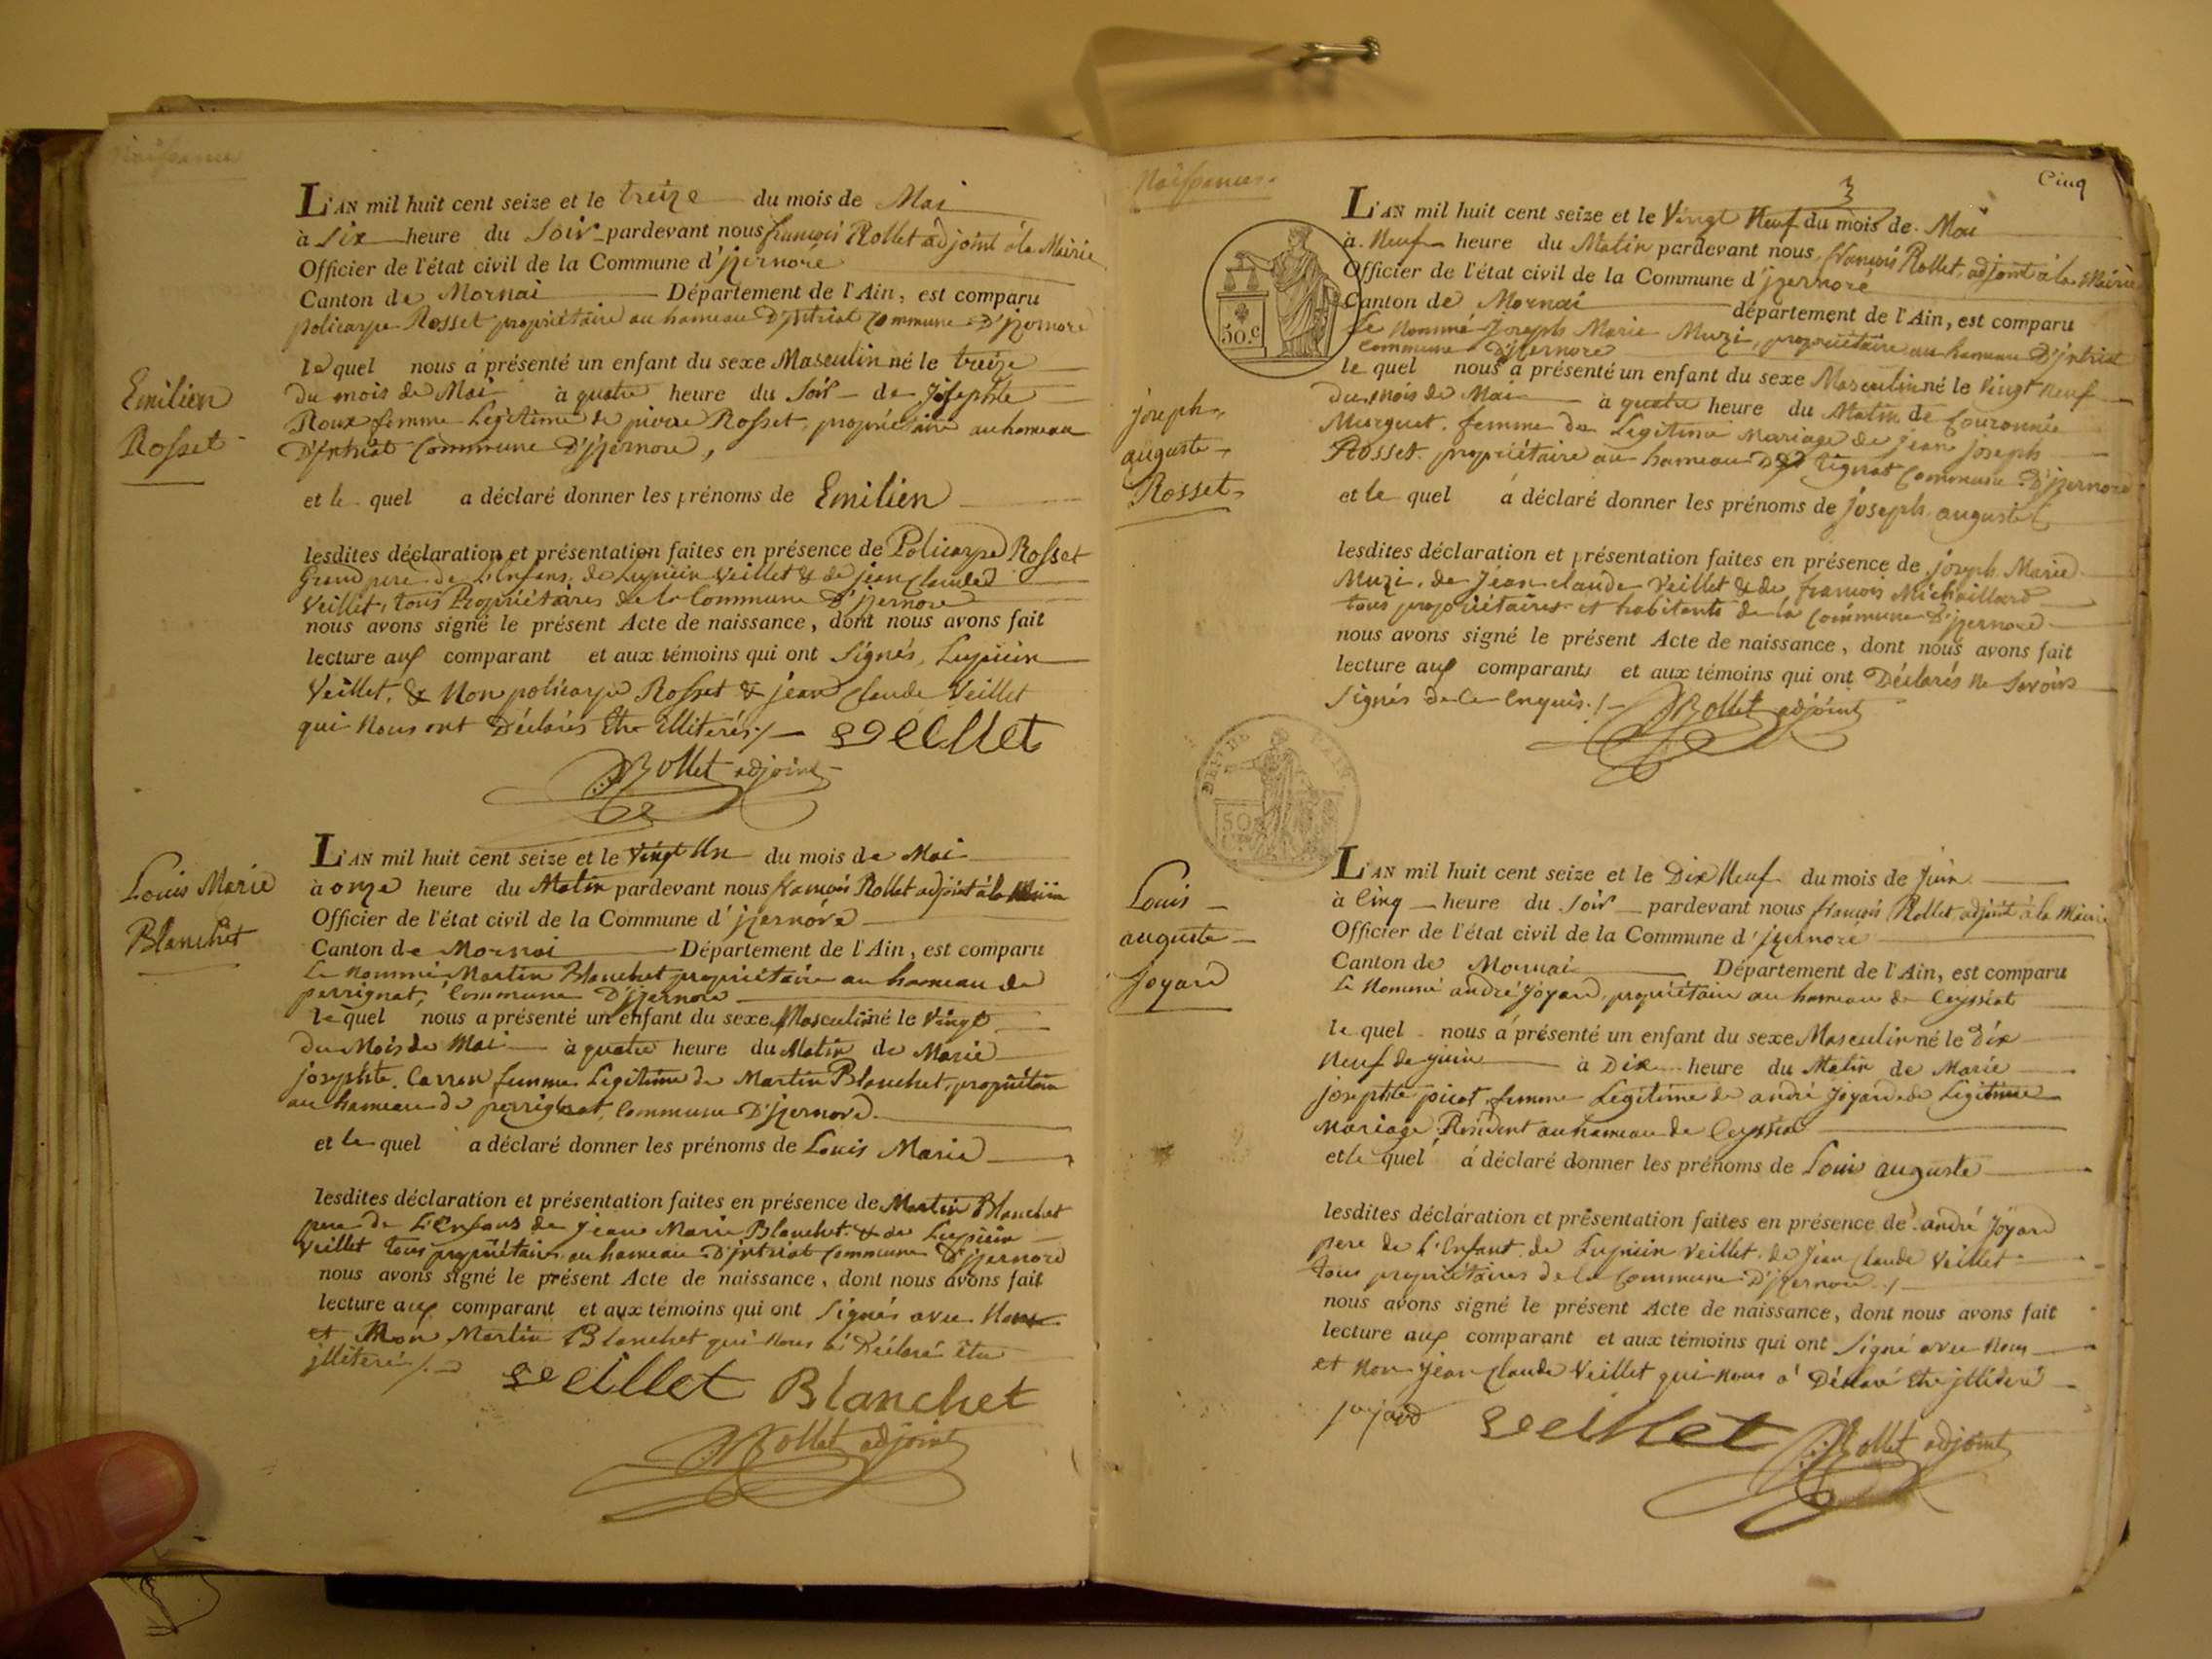 Naissance
L'AN mil huit cent seize et le treize du mois de Mai
à Six heure du Soir pardevant nous françois Rollet adjoint à la Mairie
Officier de l'état civil de la Commune d'jzernore
Canton de Mornai Département de l'Ain, est comparu
policarpe Rosset propriétaire au hameau D'jntriat Commune D'jzernore
le quel nous a présenté un enfant du sexe Masculin né le treize
du mois de Mai à quatre heure du Soir de Josephte
Roux femme Légitime de pierre Rosset, propriétaire au hameau
D'jntriat Commune D'jzernore,
et le quel a déclaré donner les prénoms de Emilien
lesdites déclaration et présentation faites en présence de Policarpe Rosset
Grand pere de L'Enfans, de Lupicin Veillet & de jean Claude
Veillet, tous Propriétaires de la Commune D'jzernore
nous avons signé le présent Acte de naissance, dont nous avons fait
lecture aux comparant et aux témoins qui ont Signés, Lupicin
Veillet, & Non policarpe Rosset & jean Claude Veillet
qui Nous ont Déclarés Etre Illiterés ./.
Veillet
Rollet adjoint
Emilien
Rosset
L'AN mil huit cent seize et le Vingt Un du mois de Mai
à onze heure du Matin pardevant nous françois Rollet adjoint à la Mairie
Officier de l'état civil de la Commune d'jzernore
Canton de Mornai Département de l'Ain, est comparu
Le Nommé Martin Blanchet propriétaire au hameau de
perrignat, Commune D'jzernore
le quel nous a présenté un enfant du sexe Masculin né le Vingt
du Mois de Mai à quatre heure du Matin de Marie
josephte Carran femme Legitime de Martin Blanchet, propriétaire
au hameau de perrignat, Commune D'jzernore
et le quel a déclaré donner les prénoms de Louis Marie
lesdites déclaration et présentation faites en présence de Martin Blanchet
pere de L'Enfans de Jean Marie Blanchet & de Lupicin
Veillet tous propriétaires au hameau D'jntriat Commune D'jzernore
nous avons signé le présent Acte de naissance, dont nous avons fait
lecture aux comparant et aux témoins qui ont Signés avec Nous
et Non Martin Blanchet qui Nous a Déclaré être
jlliteré ./.
Veillet Blanchet
Rollet adjoint
Louis Marie
Blanchet
Naissances.
3
Cinq
L'AN mil huit cent seize et le Vingt Neuf du mois de Mai
à Neuf heure du Matin pardevant nous françois Rollet, adjoint à la Mairie
Officier de l'état civil de la Commune d'jzernore
Canton de Mornai département de l'Ain, est comparu
Le Nommé Joseph Marie Muzi, propriétaire au hameau D'jntriat
Commune D'jzernore
le quel nous a présenté un enfant du sexe Masculin né le Vingt Neuf
du mois de Mai à quatre heure du Matin de Couronnée
Murguet femme de Legitime Mariage de jean joseph
Rosset propriétaire au hameau De tignat Commune D'jzernore
et le quel a déclaré donner les prénoms de Joseph auguste
lesdites déclaration et présentation faites en présence de joseph Marie
Muzi, de Jean claude Veillet & de françois Michaillard
tous propriétaires et habitants de la Commune D'jzernore
nous avons signé le présent Acte de naissance, dont nous avons fait
lecture aux comparants et aux témoins qui ont Déclarés Ne Savoir
Signés de ce Enquis ./.
Rollet adjoint
joseph
auguste
Rosset
50.c
50
L'AN mil huit cent seize et le Dix Neuf du mois de Juin
à Cinq heure du Soir pardevant nous françois Rollet adjoint à la Mairie
Officier de l'état civil de la Commune d'jzernore
Canton de Mornai Département de l'Ain, est comparu
Le Nommé andré Joyard, propriétaire au hameau de Ceyssiat
le quel nous a présenté un enfant du sexe Masculin né le Dix
Neuf de juin à Dix heure du Matin de Marie
josephte picot femme Légitime de andré Joyard de Legitime
Mariage Résident au hameau de Ceyssiat
et le quel a déclaré donner les prénoms de Louis auguste
lesdites déclaration et présentation faites en présence de andré Joyard
pere de L'Enfant de Lupicin Veillet, de Jean Claude Veillet
tous propriétaires de la Commune D'jzernore ./.
nous avons signé le présent Acte de naissance, dont nous avons fait
lecture aux comparant et aux témoins qui ont Signé avec Nous
et Non Jean Claude Veillet qui Nous a Déclaré Etre jlliteré
joyard Veillet Rollet adjoint
Louis
auguste
Joyard